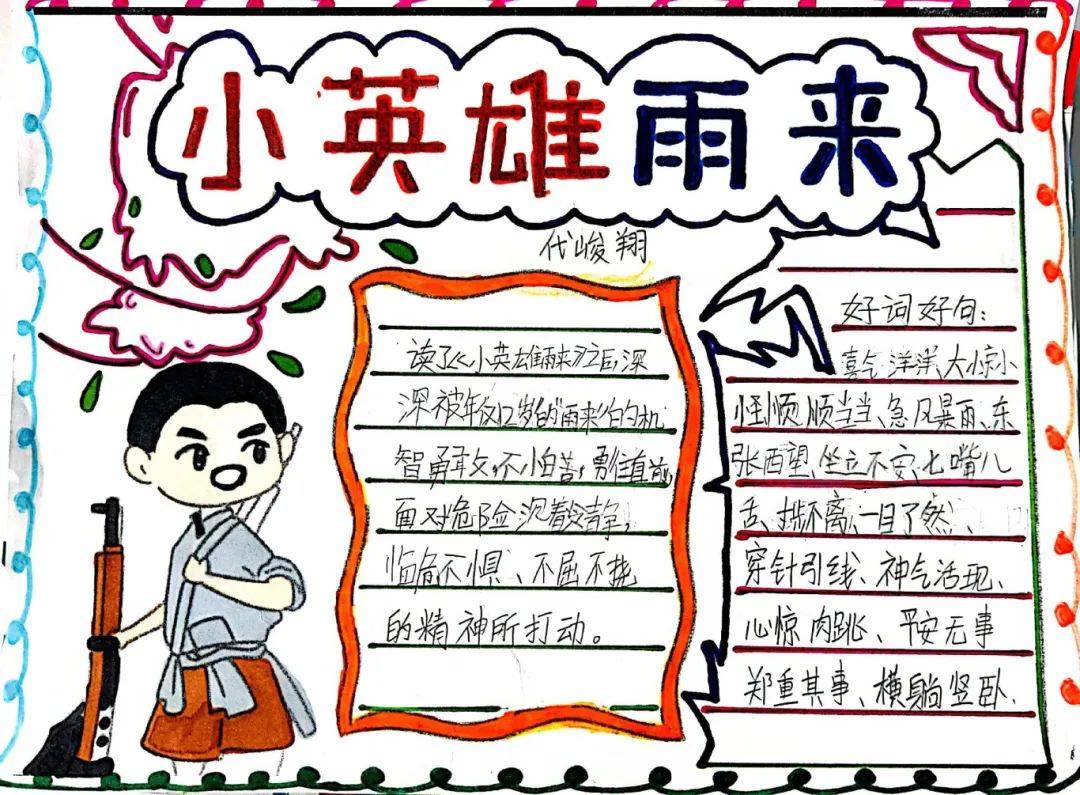 小英雄雨来
代峻翔
读了《小英雄雨来》之后,深
深被年仅12岁的“雨来”的机
智勇敢,不怕苦,勇往直前,
面对危险沉着冷静,
临危不惧、不屈不挠
的精神所打动。
好词好句:
喜气洋洋、大惊小
怪、顺顺当当、急风暴雨、东
张西望、坐立不安、七嘴八
舌、形影不离、一目了然、
穿针引线、神气活现、
心惊肉跳、平安无事
郑重其事、横躺竖卧.